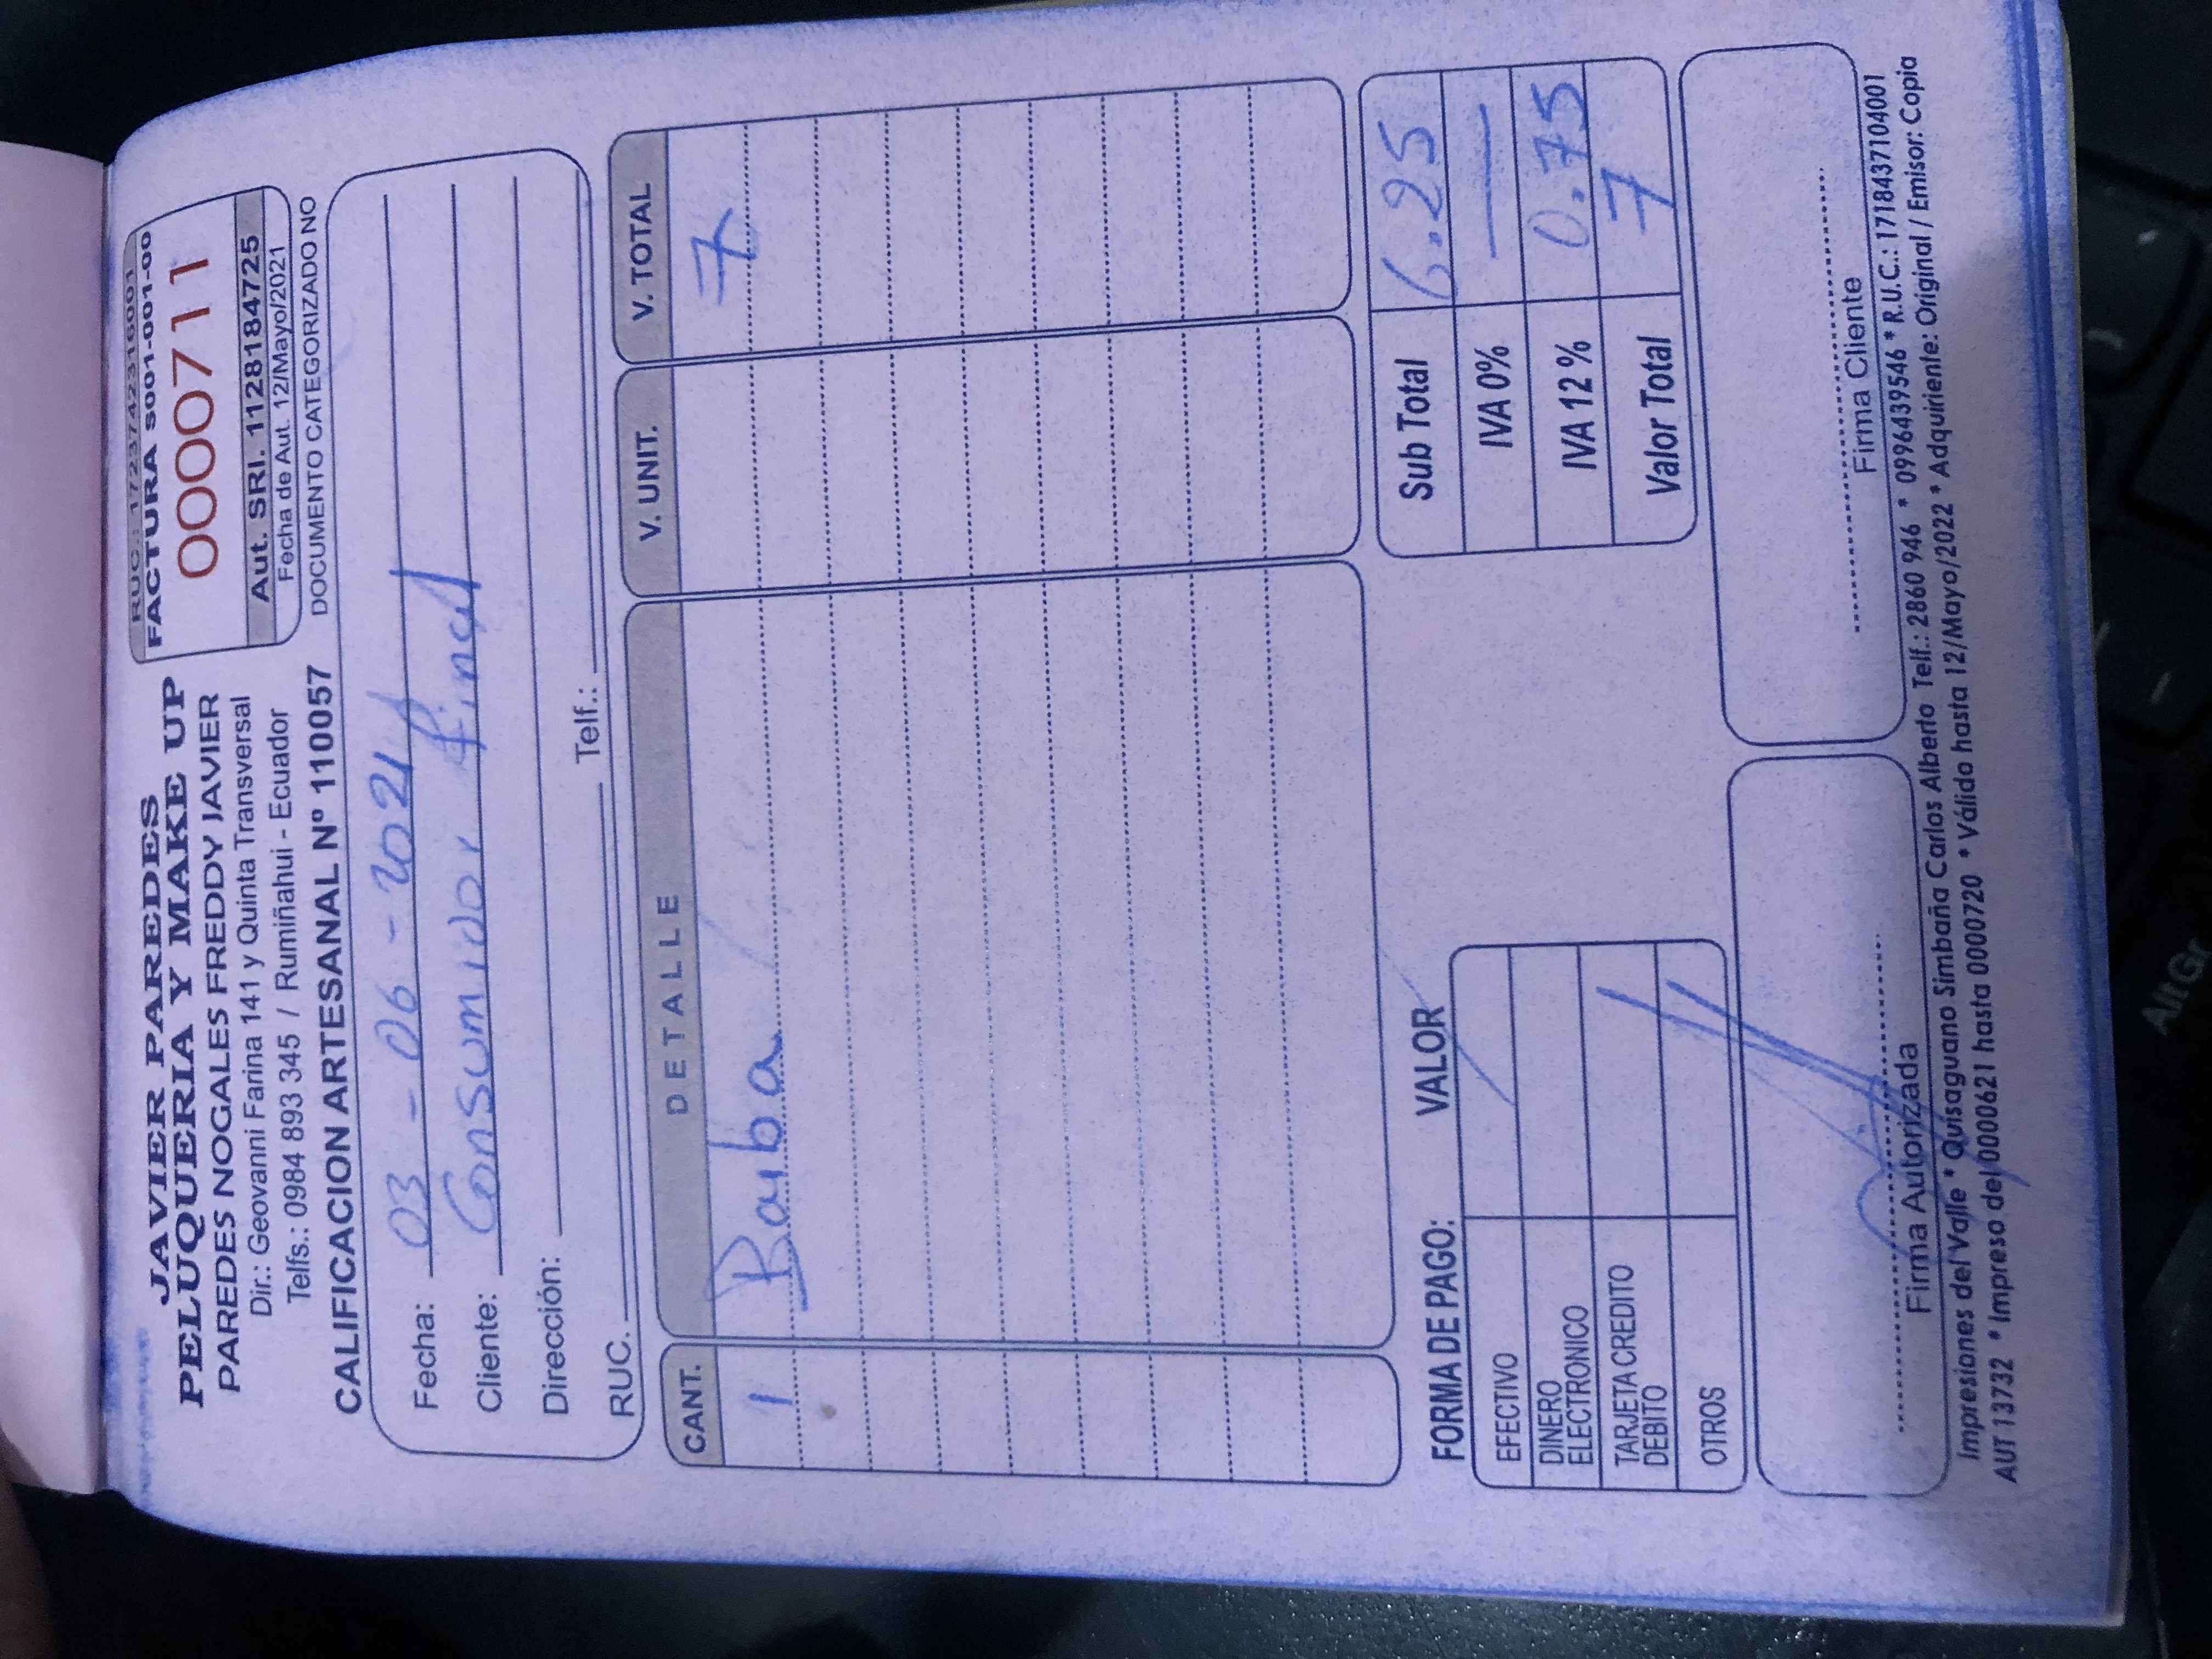 JAVIER PAREDES
PELUQUERIA Y MAKE UP
PAREDES NOGALES FREDDY JAVIER
Dir.: Geovanni Farina 141 y Quinta Transversal
Telfs.: 0984 893 345 / Rumiñahui - Ecuador
CALIFICACION ARTESANAL Nº 110057
RUC.: 1723742316001
FACTURA S001-001-00
0000711
Aut. SRI. 1128184725
Fecha de Aut. 12/Mayo/2021
DOCUMENTO CATEGORIZADO NO
Fecha: 03 - 06 - 2021
Cliente: Consumidor final
Dirección:
RUC. Telf.:
CANT. DETALLE V. UNIT. V. TOTAL
1 Barba 7
FORMA DE PAGO: VALOR
EFECTIVO
DINERO
ELECTRONICO
TARJETA CREDITO
DEBITO
OTROS
Sub Total 6.25
IVA 0% —
IVA 12 % 0.75
Valor Total 7
Firma Autorizada
Firma Cliente
Impresiones del Valle * Quisaguano Simbaña Carlos Alberto Telf.: 2860 946 * 0996439546 * R.U.C.: 1718437104001
AUT 13732 * Impreso del 0000621 hasta 0000720 * Válido hasta 12/Mayo/2022 * Adquiriente: Original / Emisor: Copia
Alt Gr